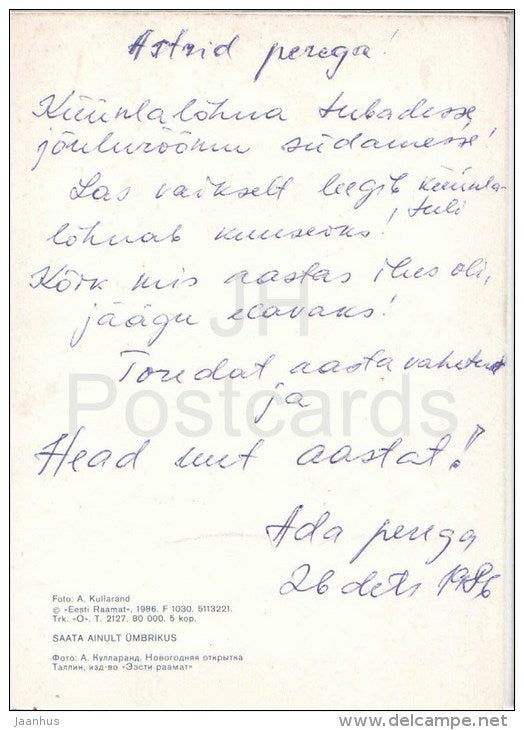 Astrid perega!
Küünlalõhna tubadesse,
jõulurõõmu südamesse!
Las vaikselt leegib küünla-
tuli
lõhnab kuuseoks!
Kõik mis aastas ilus oli,
jäägu elavaks!
Toredat aastavahetust
ja
Head uut aastat!
Ada perega
26 dets 1986
JH
Postcards
Foto: A. Kullarand
© «Eesti Raamat», 1986. F 1030. 5113221.
Trk. «O». T. 2127. 80 000. 5 kop.
SAATA AINULT ÜMBRIKUS
Фото: А. Кулларанд. Новогодняя открытка
Таллин, изд-во «Ээсти раамат»
jhanhus
delcampe.net